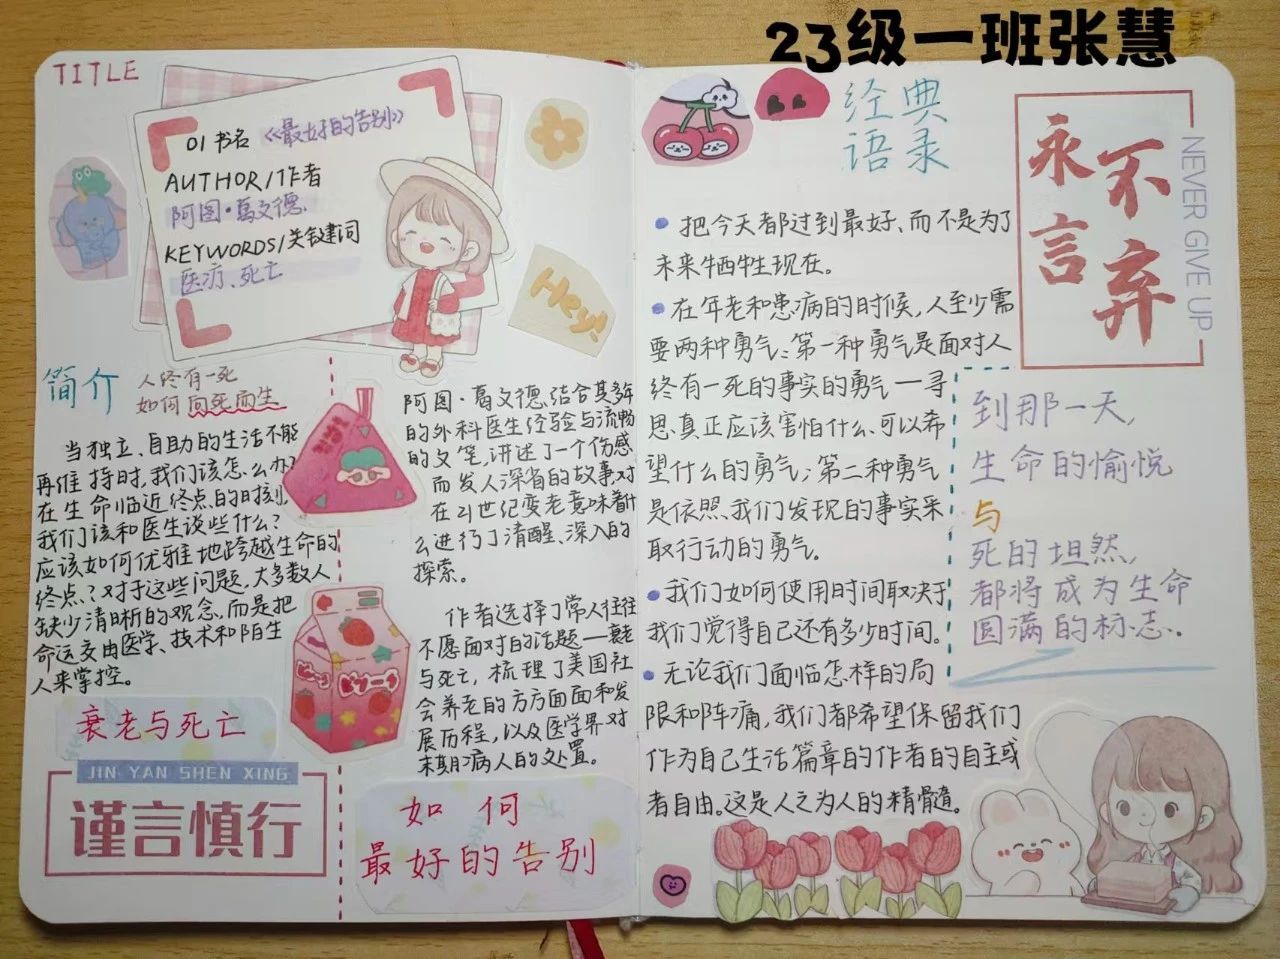 23级一班张慧
TITLE
01 书名 《最好的告别》
AUTHOR/作者
阿图·葛文德
KEYWORDS/关键词
医疗、死亡
Hey!
简介
人终有一死
如何向死而生
当独立、自助的生活不能
再维持时,我们该怎么办?
在生命临近终点的时刻,
我们该和医生谈些什么?
应该如何优雅地跨越生命的
终点?对于这些问题,大多数人
缺少清晰的观念,而是把
命运交由医学、技术和陌生
人来掌控。
衰老与死亡
JIN YAN SHEN XING
谨言慎行
阿图·葛文德结合其多年
的外科医生经验与流畅
的文笔,讲述了一个个伤感
而发人深省的故事,对
在21世纪变老意味着什
么进行了清醒、深入的
探索。
作者选择了常人往往
不愿面对的话题——衰老
与死亡,梳理了美国社
会养老的方方面面和发
展历程,以及医学界对
末期病人的处置。
如何
最好的告别
经典
语录
把今天都过到最好、而不是为了
未来牺牲现在。
在年老和患病的时候,人至少需
要两种勇气:第一种勇气是面对人
终有一死的事实的勇气—寻
思真正应该害怕什么、可以希
望什么的勇气;第二种勇气
是依照我们发现的事实采
取行动的勇气。
我们如何使用时间取决于
我们觉得自己还有多少时间。
无论我们面临怎样的局
限和阵痛,我们都希望保留我们
作为自己生活篇章的作者的自主或
者自由。这是人之为人的精髓。
永不言弃
NEVER GIVE UP
到那一天,
生命的愉悦
与
死的坦然,
都将成为生命
圆满的标志.